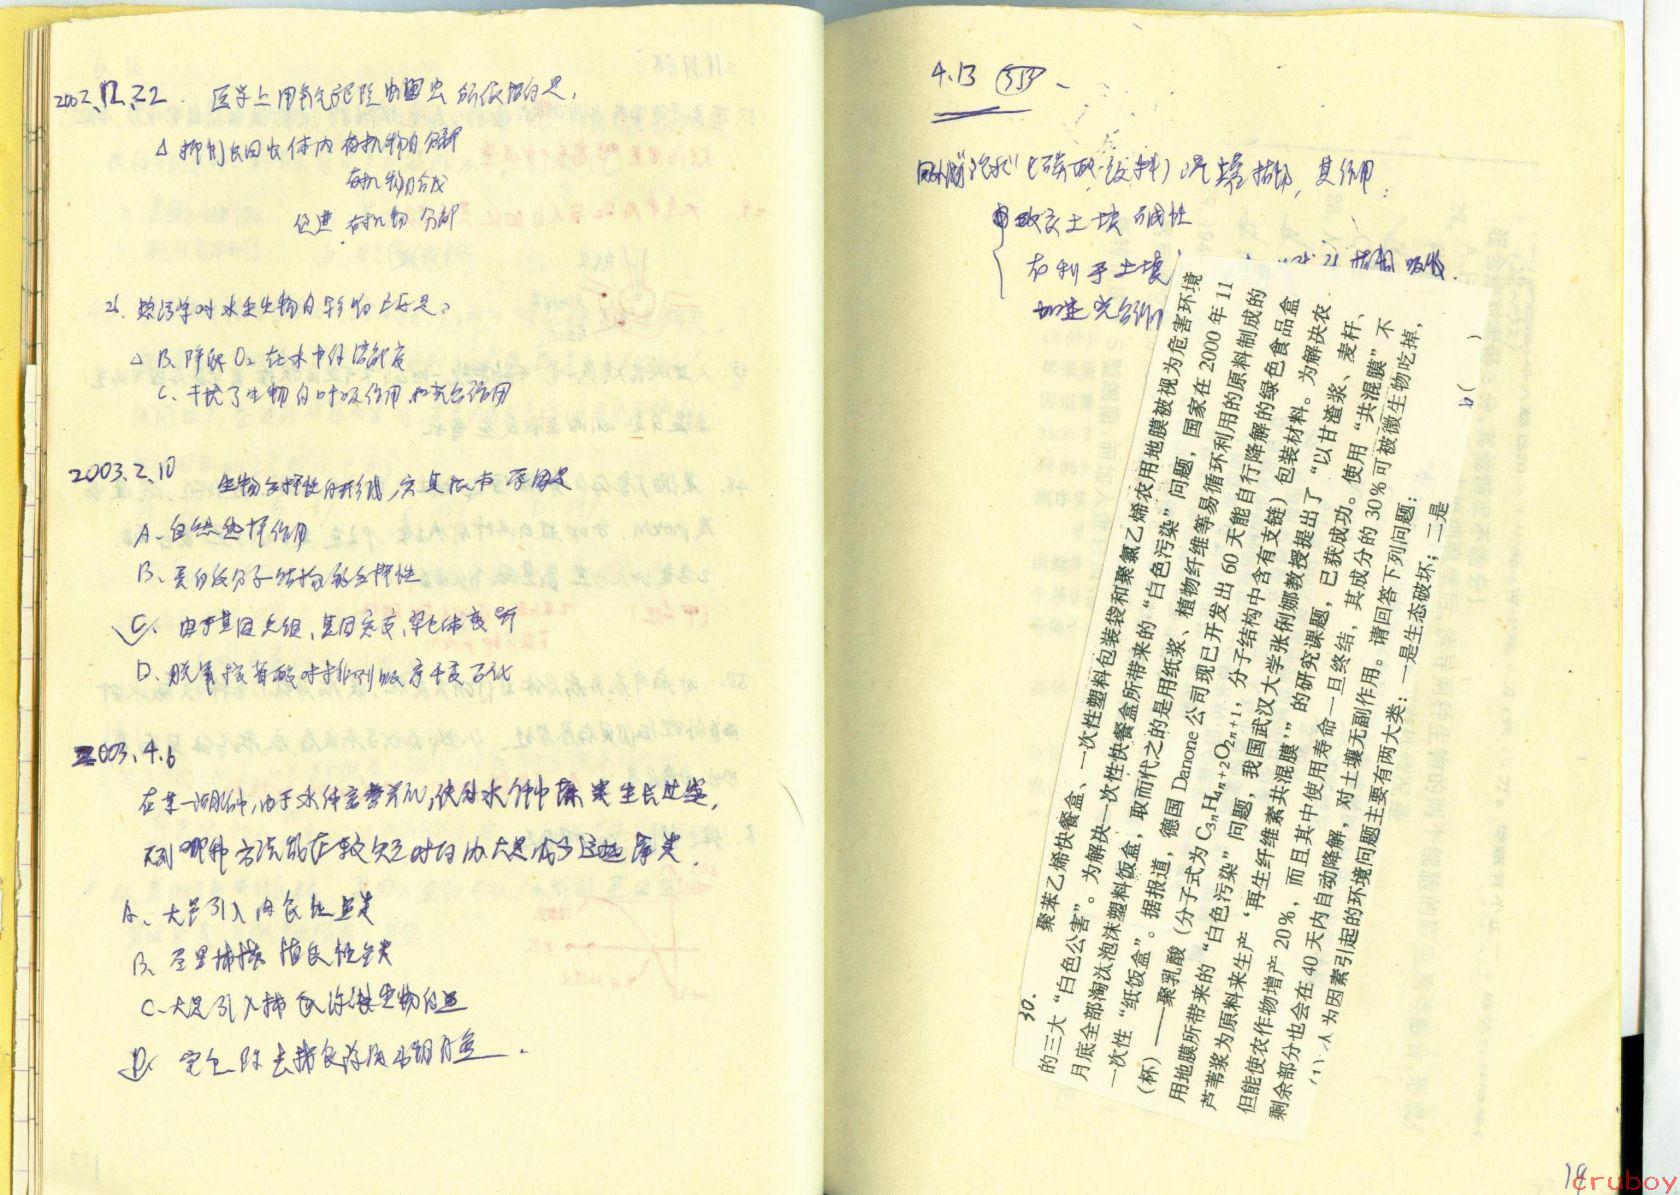 2002.12.22 医学上用氧气驱除蛔虫所依据的是,
△ 抑制蛔虫体内有机物的分解
有机物的合成
促进 有机物分解
26. 热污染对水生生物的影响主要是:
△ B. 降低O₂在水中的溶解度
C. 干扰了生物的呼吸作用和光合作用
2003.2.10 生物多样性的形成,究其根本原因是
A. 自然选择作用
B. 蛋白质分子结构的多样性
C. 由于基因重组、基因突变,染色体变异
D. 脱氧核苷酸对排列顺序千变万化
2003.4.6
在某一湖泊中,由于水体富营养化,使对水中藻类生长过盛,
下列哪种方法能在较短时间内大量减少这些藻类.
A. 大量引入肉食性鱼类
B. 尽量捕捞植食性鱼类
C. 大量引入捕食浮游生物的鱼
D. 完全除去捕食浮游生物的鱼.
4.13
国外用“汽水”(碳酸饮料)浇灌植物,其作用:
改变土壤碱性
有利于土壤 植物吸收.
加速光合作用
30. 聚苯乙烯快餐盒、一次性塑料包装袋和聚氯乙烯农用地膜被视为危害环境
的三大“白色公害”。为解决一次性快餐盒所带来的“白色污染”问题,国家在2000年11
月底全部淘汰泡沫塑料饭盒,取而代之的是用纸浆、植物纤维等易循环利用的原料制成的
一次性“纸饭盒”。据报道,德国Danone公司现已开发出60天能自行降解的绿色食品盒
(杯)——聚乳酸(分子式为C₃ₙH₄ₙ₊₂O₂ₙ₊₁,分子结构中含有支链)包装材料。为解决农
用地膜所带来的“白色污染”问题,我国武汉大学张俐娜教授提出了“以甘渣浆、麦秆、
芦苇浆为原料来生产‘再生纤维素共混膜’”的研究课题,已获成功。使用“共混膜”不
但能使农作物增产20%,而且其中使用寿命一旦终结,其成分的30%可被微生物吃掉,
剩余部分也会在40天内自动降解,对土壤无副作用。请回答下列问题:
(1)人为因素引起的环境问题主要有两大类:一是生态破坏;二是
19
cruboy